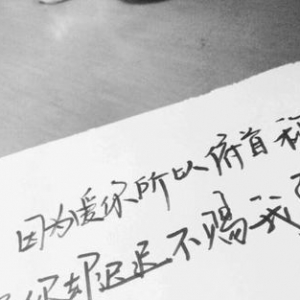 因为爱你所以俯首称
你却迟迟不赐我